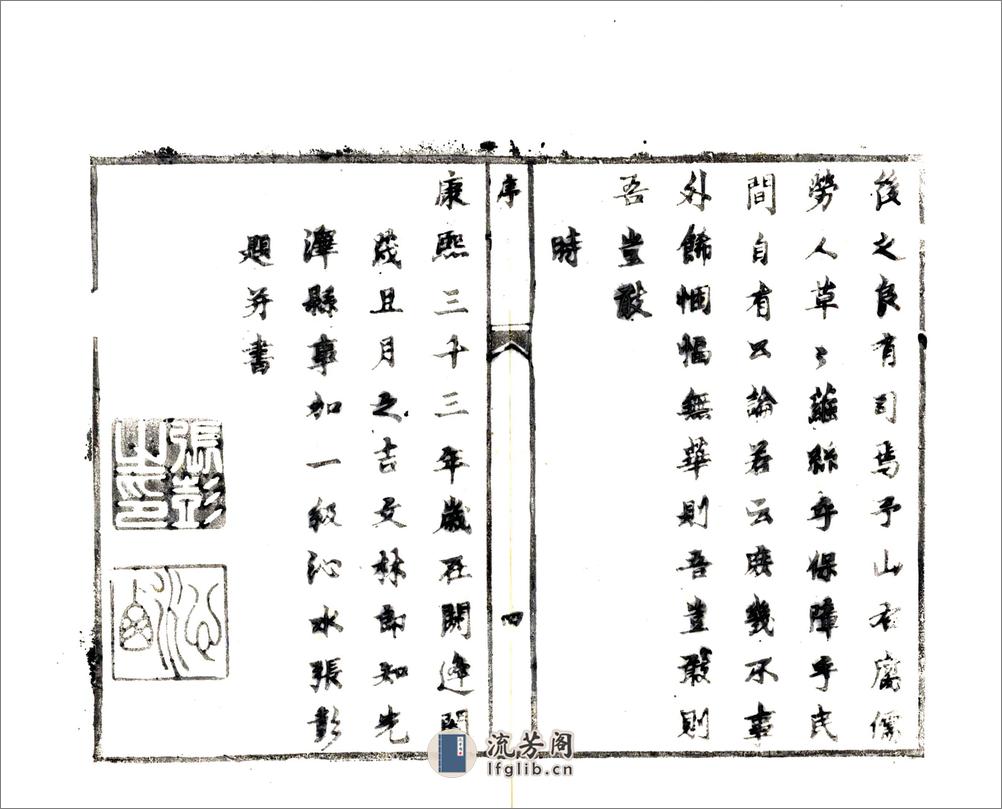 後之良有司焉予山右腐儒
勞人草〻繭絲乎保障乎民
間自有公論若云庶幾不事
外餙悃愊無華則吾豈敢則
吾豈敢
時
序
四
康熙三十三年歲在閼逢閹
茂且月之吉文林郎知光
澤縣事加一級沁水張彭
題并書
張彭之印
流芳阁
lfglib.cn